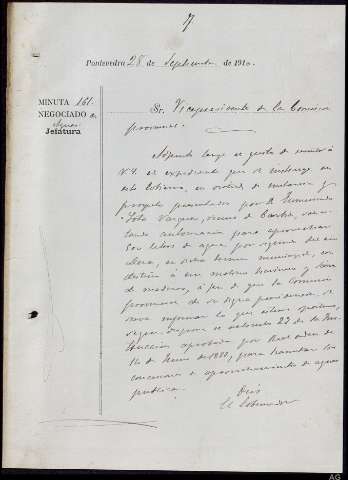 7
Pontevedra 28 de Septiembre de 1910.
MINUTA 161.
NEGOCIADO de
Aguas
Jefatura
Sr. Vicepresidente de la Comisión
provincial.
Adjunto tengo el gusto de remitir á
V.S. el expediente que se instruye en
este Gobierno, en virtud de instancia y
proyecto presentados por D.
vecino de
autorización para aprovechar
litros de agua por segundo del
en dicho término municipal, con
destino á un molino harinero y
de maderas, á fin de que la Comisión
provincial de su digna presidencia se
sirva informar lo que estime oportuno,
según dispone el artículo 22 de la Ins-
trucción aprobada por Real orden de
14 de Junio de 1883, para tramitar las
concesiones de aprovechamiento de aguas
públicas.
Dios
El Gobernador
AG